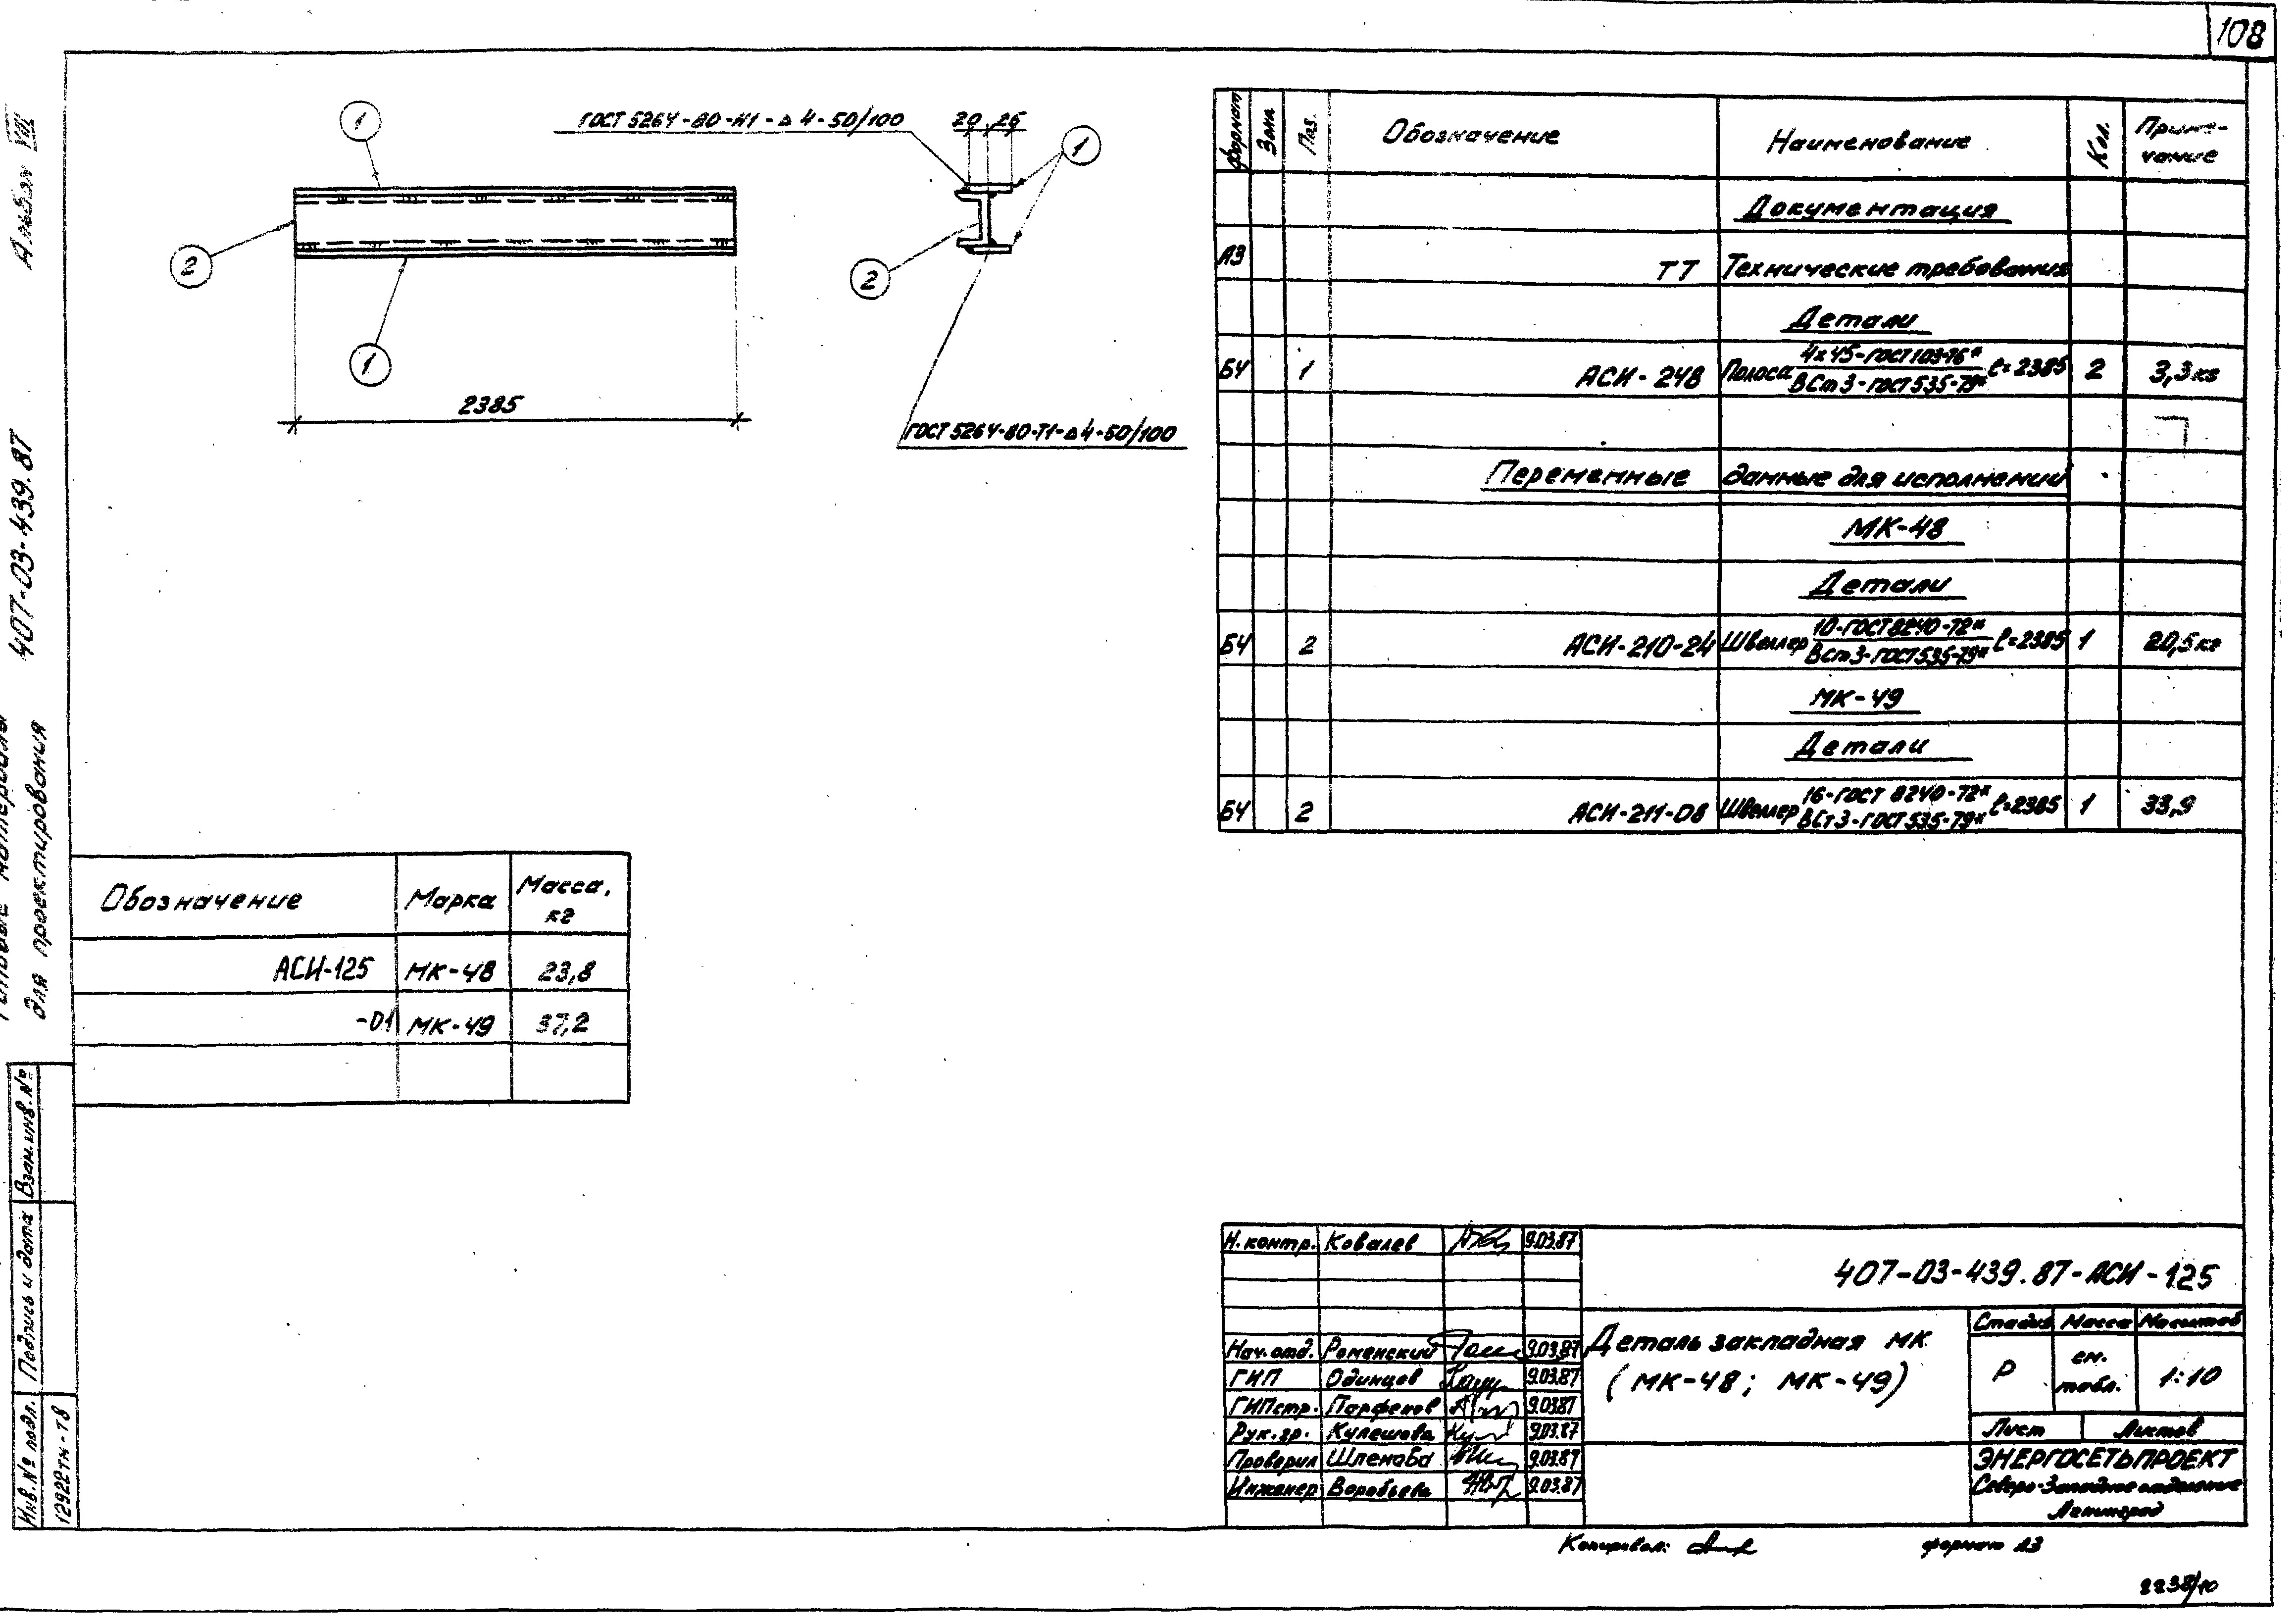 108
Альбом VIII
407-03-439.87
для проектирования
1
ГОСТ 5264-80-Н1-△4-50/100
20 26
1
2
2
1
2385
ГОСТ 5264-80-Т1-△4-50/100
Формат Зона Поз. Обозначение Наименование Кол. Приме-
чание
Документация
А3 ТТ Технические требования
Детали
БЧ 1 АСИ-248 Полоса 4х45-ГОСТ103-76* ℓ=2385 2 3,3кг
ВСт3-ГОСТ535-79*
Переменные данные для исполнений
МК-48
Детали
БЧ 2 АСИ-210-24 Швеллер 10-ГОСТ8240-72* ℓ=2385 1 20,5кг
ВСт3-ГОСТ535-79*
МК-49
Детали
БЧ 2 АСИ-211-08 Швеллер 16-ГОСТ 8240-72* ℓ=2385 1 33,9
ВСт3-ГОСТ535-79*
Обозначение Марка Масса,
кг
АСИ-125 МК-48 23,8
-01 МК-49 37,2
Взам.инв.№
Подпись и дата
Инв.№ подл.
12922тм-т8
Н.контр. Ковалев 9.03.87
407-03-439.87-АСИ-125
Нач.отд. Роменский 9.03.87
ГИП Одинцов 9.03.87
ГИПстр. Парфенов 9.03.87
Рук.гр. Кулешова 9.03.87
Проверил Шленова 9.03.87
Инженер Воробьева 9.03.87
Деталь закладная МК
(МК-48; МК-49)
Стадия Масса Масштаб
Р см.
табл. 1:10
Лист Листов
ЭНЕРГОСЕТЬПРОЕКТ
Северо-Западное отделение
Ленинград
Копировал: формат А3
2238/10